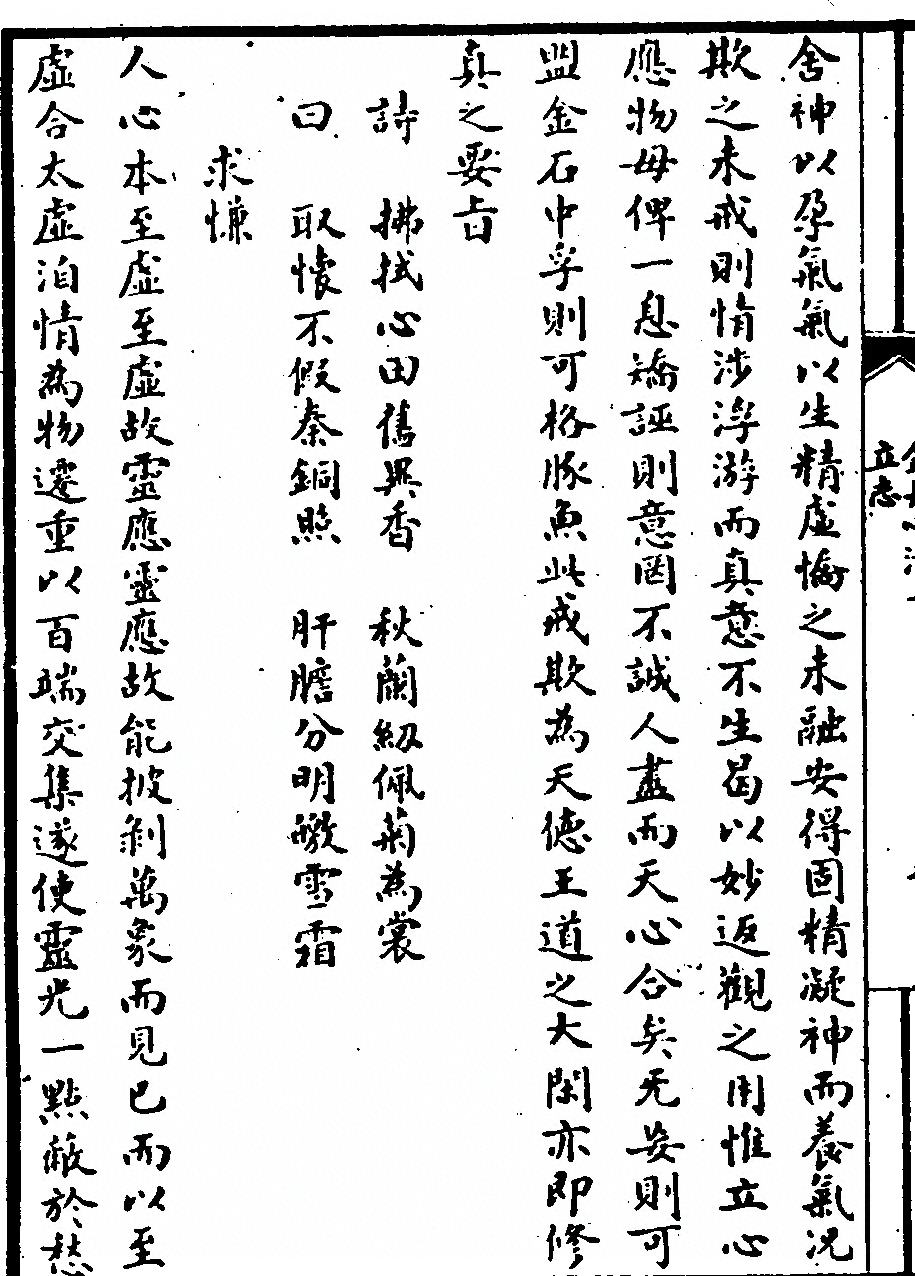 立志
舍神以孕氣氣以生精虛憍之未融安得固精凝神而養氣況
欺之未戒則情涉浮游而真意不生曷以妙返觀之用惟立心
應物毋俾一息矯誣則意罔不誠人盡而天心合矣无妄則可
盟金石中孚則可格豚魚此戒欺為天德王道之大閑亦即修
真之要旨
詩 拂拭心田舊異香 秋蘭紉佩菊為裳
曰 取懷不假秦銅照 肝膽分明皦雪霜
求慊
人心本至虛至虛故靈應靈應故能披剝萬象而見已而以至
虛合太虛洎情為物遷重以百端交集遂使靈光一點蔽於愁